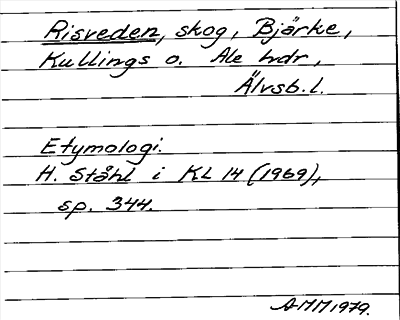 Risveden, skog, Bjärke,
Kullings o. Ale hdr,
Älvsb. l.
Etymologi.
H. Ståhl i KL 14 (1969),
sp. 344.
AMM 1979.